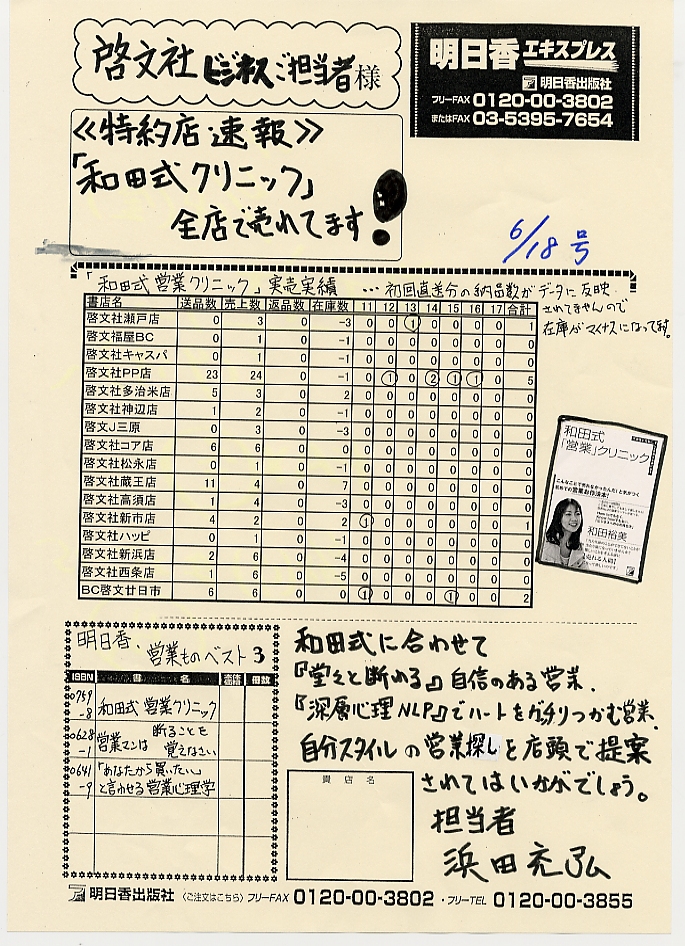 啓文社 ビジネスご担当者様
明日香エキスプレス
明日香出版社
フリーFAX 0120-00-3802
またはFAX 03-5395-7654
≪特約店速報≫
「和田式クリニック」
全店で売れてます!
6/18号
「和田式営業クリニック」実売実績 …初回直送分の納品数がデータに反映
されてませんので
在庫がマイナスになってます。
書店名 送品数 売上数 返品数 在庫数 11 12 13 14 15 16 17 合計
啓文社瀬戸店 0 3 0 -3 0 0 1 0 0 0 0 1
啓文社福屋BC 0 1 0 -1 0 0 0 0 0 0 0 0
啓文社キャスパ 0 1 0 -1 0 0 0 0 0 0 0 0
啓文社PP店 23 24 0 -1 0 1 0 2 1 1 0 5
啓文社多治米店 5 3 0 2 0 0 0 0 0 0 0 0
啓文社神辺店 1 2 0 -1 0 0 0 0 0 0 0 0
啓文J三原 0 3 0 -3 0 0 0 0 0 0 0 0
啓文社コア店 6 6 0 0 0 0 0 0 0 0 0 0
啓文社松永店 0 1 0 -1 0 0 0 0 0 0 0 0
啓文社蔵王店 11 4 0 7 0 0 0 0 0 0 0 0
啓文社高須店 1 4 0 -3 0 0 0 0 0 0 0 0
啓文社新市店 4 2 0 2 1 0 0 0 0 0 0 1
啓文社ハッピ 0 1 0 -1 0 0 0 0 0 0 0 0
啓文社新浜店 2 6 0 -4 0 0 0 0 0 0 0 0
啓文社西条店 1 6 0 -5 0 0 0 0 0 0 0 0
BC啓文廿日市 6 6 0 0 1 0 0 0 1 0 0 2
和田式
「営業」クリニック
和田裕美
明日香・営業ものベスト3
ISBN 書名 冊数
0759-8 和田式営業クリニック
0628-1 営業マンは断ることを覚えなさい
0641-9 「あなたから買いたい」と言わせる営業心理学
和田式に合わせて
『堂々と断める』自信のある営業、
『深層心理NLP』でハートをガチリつかむ営業、
自分スタイルの営業探しを店頭で提案
されてはいかがでしょう。
貴店名
担当者
浜田充弘
明日香出版社 〈ご注文はこちら〉フリーFAX 0120-00-3802・フリーTEL 0120-00-3855